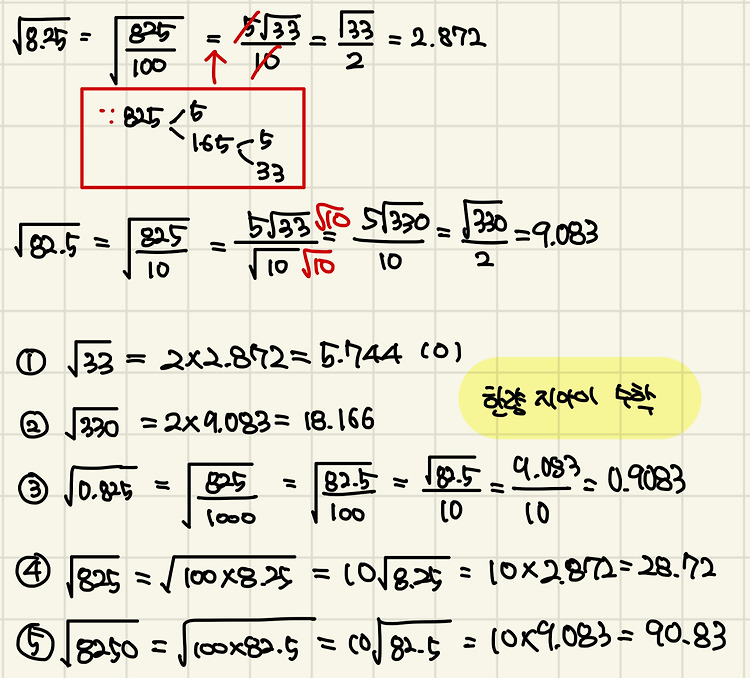 √8.25 = √(825/100) = 5√33/10 = √33/2 = 2.872
∵ 825 < 5
165 < 5
33
√82.5 = √(825/10) = 5√33 √10/√10 √10 = 5√330/10 = √330/2 = 9.083
① √33 = 2×2.872 = 5.744 (O)
② √330 = 2×9.083 = 18.166
한량 지아이 수학
③ √0.825 = √(825/1000) = √(82.5/100) = √82.5/10 = 9.083/10 = 0.9083
④ √825 = √(100×8.25) = 10√8.25 = 10×2.872 = 28.72
⑤ √8250 = √(100×82.5) = 10√82.5 = 10×9.083 = 90.83